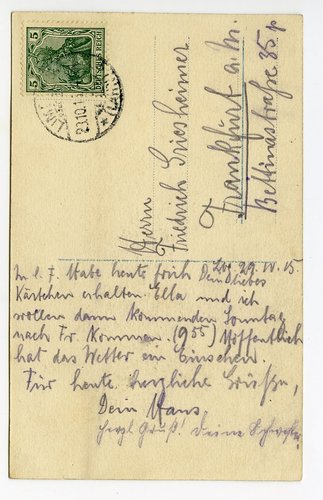 5
DEUTSCHES REICH
5
23.10.15
Herrn
Friedrich Griesheimer
Frankfurt a. M
Bettinastraße 35 p
15.
M. l. F. Habe heute früh Dein liebes
Kärtchen erhalten. Ella und ich
wollen dann kommenden Sonntag
nach Fr. kommen. (9 55) Hoffentlich
hat das Wetter ein Einsehen.
Für heute herzliche Grüße,
Dein Hans
Herzl. Gruß! Deine